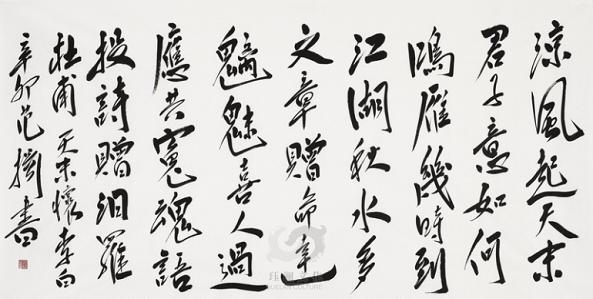 涼風起天末
君子意如何
鴻雁幾時到
江湖秋水多
文章贈命達
魑魅喜人過
應共冤魂語
投詩贈汨羅
杜甫天末懷李白
辛卯范書